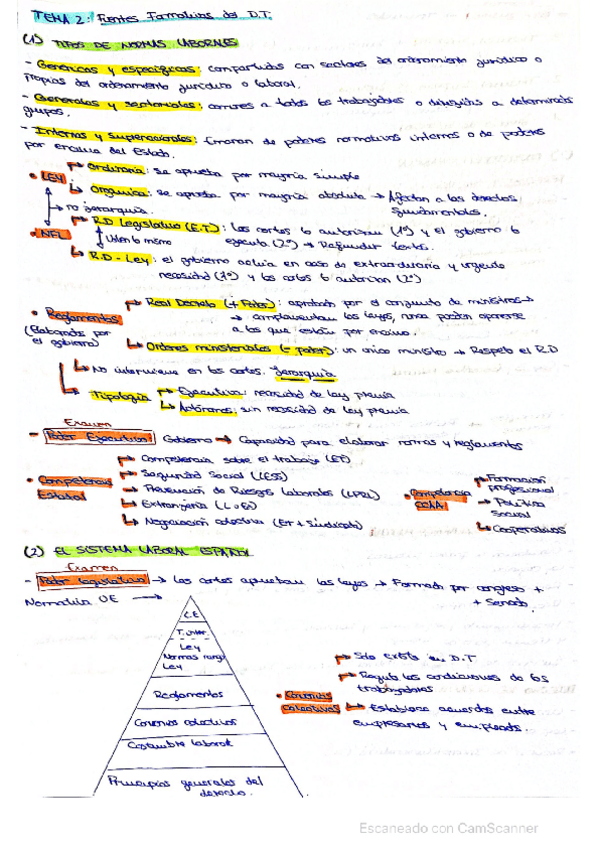 TEMA 2: Fuentes Formativas del D.T.
(1) TIPOS DE NORMAS LABORALES
- Genéricas y específicas: compartidas con sectores del ordenamiento jurídico o
propias del ordenamiento jurídico o laboral.
- Generales y sectoriales: comunes a todos los trabajadores o dirigidas a determinados
grupos.
- Internas y supranacionales: Emanan de poderes normativos internos o de poderes
por encima del Estado.
• LEY
Ordinaria: se aprueba por mayoría simple
Orgánica: se aprueba por mayoría absoluta → Afectan a los derechos
fundamentales.
→ no jerarquía.
• NFL
R.D Legislativo (E.T): Las cortes lo autorizan (1º) y el gobierno lo
ejecuta (2º) → Refundir textos.
Valen lo mismo
R.D - Ley: el gobierno actúa en caso de extraordinaria y urgente
necesidad (1º) y las cortes lo autorizan (2º)
• Reglamentos
(Elaborados por
el gobierno)
Real Decreto (+ Poder): aprobado por el conjunto de ministros →
→ complementan las leyes, nunca pueden oponerse
a los que están por encima.
Órdenes ministeriales (- poder): un único ministro → Respeto el R.D
No intervienen en las cortes. Jerarquía
Tipología
Ejecutivos: necesidad de ley previa
Autónomos: sin necesidad de ley previa
Examen
- Poder Ejecutivo: Gobierno → Capacidad para elaborar normas y reglamentos
• Competencia
Estatal
Competencia sobre el trabajo (ET)
Seguridad Social (LGSS)
Prevención de Riesgos Laborales (LPRL)
Extranjería (LOEX)
Negociación colectiva (ET + Sindicato)
• Competencia
CCAA
Formación
profesional
Política
Social
Cooperativas
(2) EL SISTEMA LABORAL ESPAÑOL
Examen
- Poder legislativo → Las cortes aprueban las leyes → Formado por congreso +
+ Senado.
Normativa UE →
C.E
T. inter.
Ley
Normas rango
Ley
Reglamentos
Convenios colectivos
Costumbre laboral
Principios generales del
derecho.
• Convenios
colectivos
Sólo existe en D.T
Regula las condiciones de los
trabajadores
Establece acuerdos entre
empresarios y empleads.
Escaneado con CamScanner